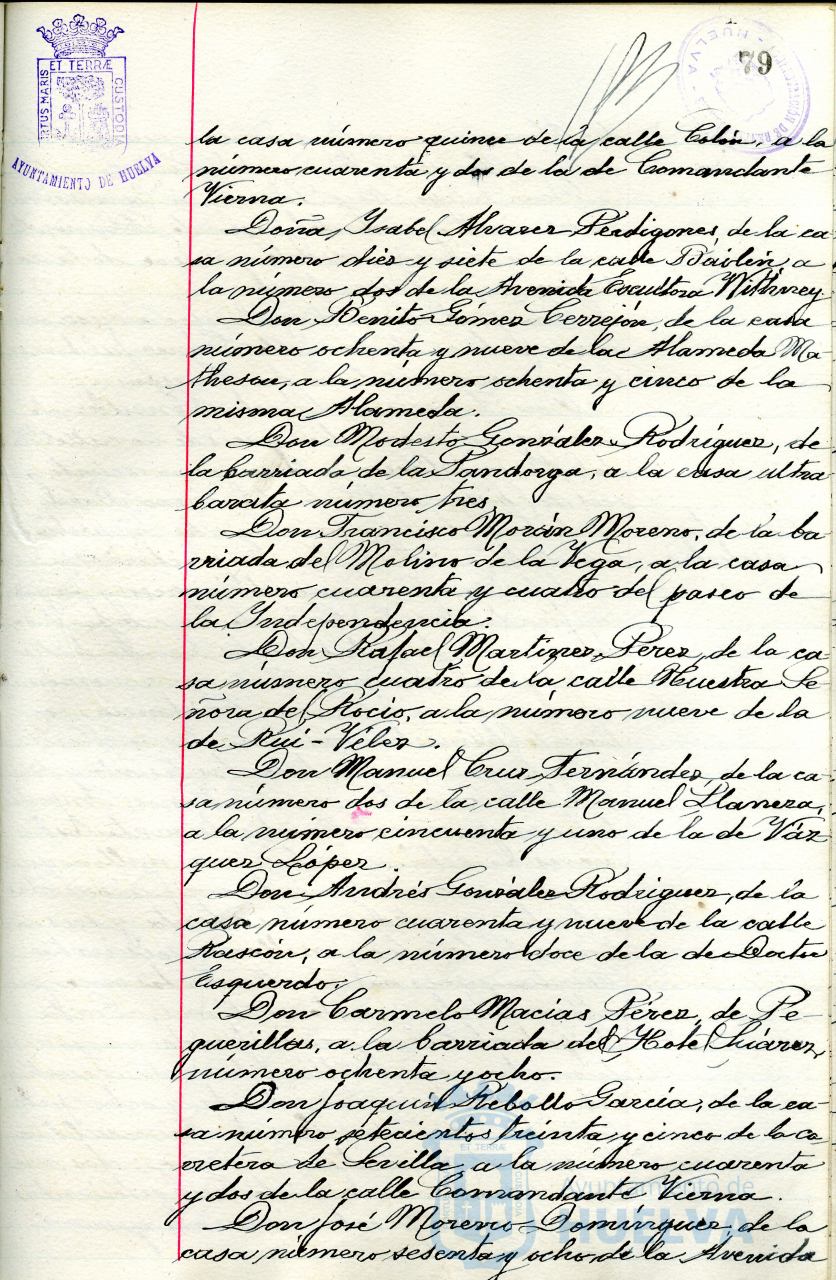 79
ET TERRÆ
CUSTODIA
AYUNTAMIENTO DE HUELVA
la casa número quince de la calle Colón, a la
número cuarenta y dos de la de Comandante
Vierna.
Doña Isabel Alvarez Perdigones, de la ca-
sa número diez y siete de la calle Bailén, a
la número dos de la Avenida Escultora Withney.
Don Benito Gómez Cerrejón, de la casa
número ochenta y nueve de la Alameda Ma-
theson, a la número ochenta y cinco de la
misma Alameda.
Don Modesto González Rodríguez, de
la barriada de la Pandorga, a la casa ultra-
barata número tres.
Don Francisco Morán Moreno, de la ba-
rriada del Molino de la Vega, a la casa
número cuarenta y cuatro del paseo de
la Independencia.
Don Rafael Martínez Pérez, de la ca-
sa número cuatro de la calle Nuestra Se-
ñora del Rocio, a la número nueve de la
de Rui-Vélez.
Don Manuel Cruz Fernández, de la ca-
sa número dos de la calle Manuel Llaneza,
a la número cincuenta y uno de la de Váz-
quez López.
Don Andrés González Rodríguez, de la
casa número cuarenta y nueve de la calle
Rascón, a la número doce de la de Doctor
Esquerdo.
Don Carmelo Macías Pérez, de Pe-
guerillas, a la barriada del Hotel Suárez,
número ochenta y ocho.
Don Joaquín Rebollo García, de la ca-
sa número setecientos treinta y cinco de la ca-
rretera de Sevilla, a la número cuarenta
y dos de la calle Comandante Vierna.
Don José Moreno Domínguez, de la
casa número sesenta y ocho de la Avenida
Ayuntamiento de
HUELVA